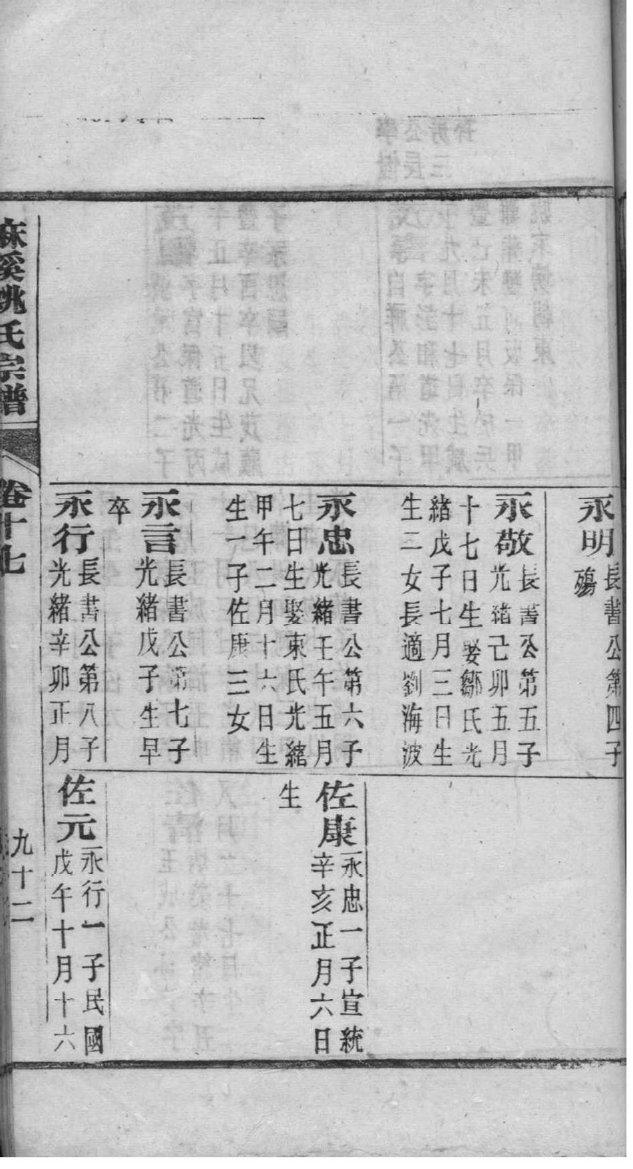 永明
長書公第四子
殤
永敬
長書公第五子
光緒己卯五月
十七日生娶鄒氏光
緒戊子七月三日生
生二女長適劉海波
永忠
長書公第六子
光緒壬午五月
七日生娶東氏光緒
甲午二月十六日生
生一子佐康三女
永言
長書公第七子
光緒戊子生早
卒
永行
長書公第八子
光緒辛卯正月
佐康
永忠一子宣統
辛亥正月六日
生
佐元
永行一子民國
戊午十月十六
麻溪姚氏宗譜
卷十七
九十二